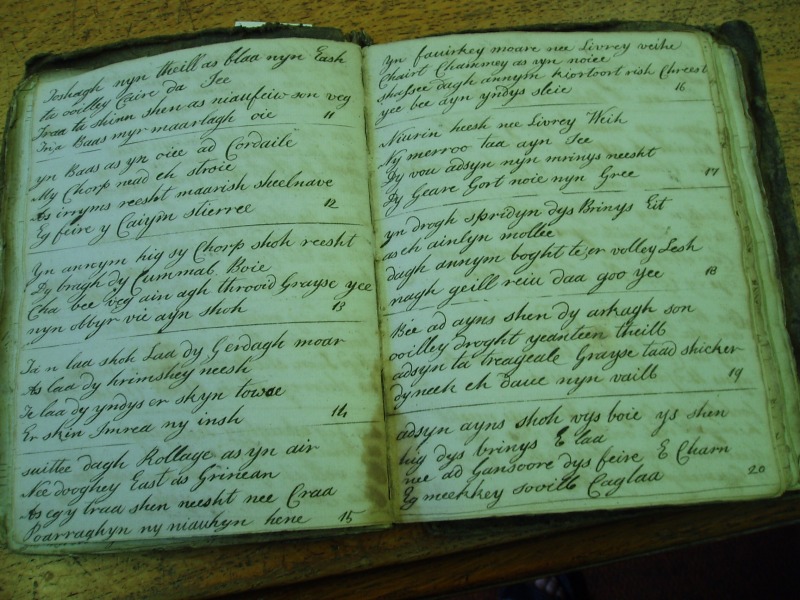 Toshagh nyn theill as blaa nyn Eash
ta ooilley Caire da Jee
Traa ta shinn shen as niaufeiw son veg
Tria Baas myr maarlagh oie 11
yn Baas as yn oiee ad Cordaile
My Chorp nad eh stroie
As irryms reesht maarish sheelnave
Eg feire y Caiym stierree 12
Yn annym hig sy Chorp shoh reesht
Dy bragh dy Cummal Boie
Cha bee veg ain agh throoid Grayse yee
nyn obbyr vie ayn shoh 13
Ta n laa shoh Laa dy Gerdagh moar
As laa dy hrimshey neesh
Te laa dy yndys er skyn towse
Er skin Imrea ny insh 14
suittee dagh Rollage as yn air
Nee dooghey East as Grinean
As egy traa shen neesht nee Craa
Poarraghyn ny niauhyn hene 15
Yn fauirkey moare nee Livrey veihe
Chairt Chammey as yn noiee
shafsee dagh annym kiortoort rish Chreest
yee bee ayn yndys sleie 16
Niurin heesh nee Livrey Weih
Ny merroo taa ayn Jee
Dy vou adsyn nyn mrinys neesht
Dy Geare Gort noie nyn Gree 17
yn drogh spridyn dys Brinys Eit
as eh ainlyn mollee
dagh annym boght te er volley Lesh
nagh geill reiu daa goo yee 18
Bie ad ayns shen dy arkagh son
ooilley droght yeanteen theill
adsyn ta treageale Grayse taad shicker
dy neeh eh daue nyn vaill 19
adsyn ayns shoh vys boie ys shen
hig dys brinys E laa
nee ad Gansoore dys feire E Charn
Eg meekkey sooill Caglaa 20